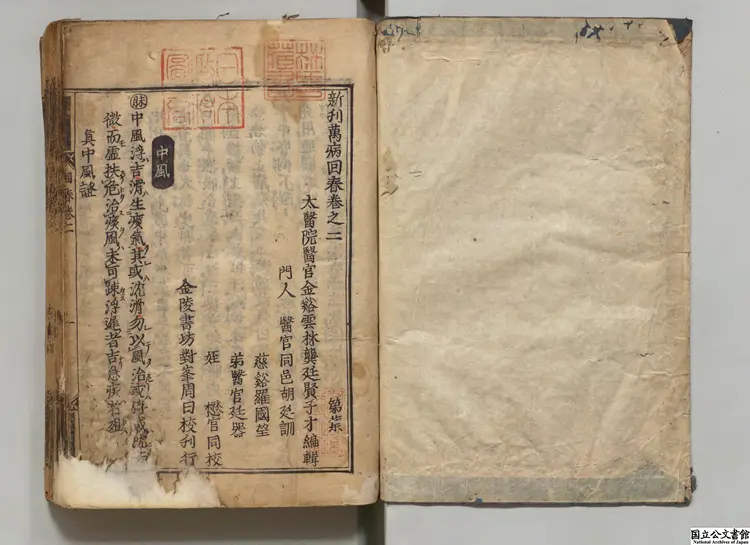 新刋萬病回春卷之二
太醫院醫官金谿雲林龔廷賢子才編輯
門人 醫官同邑胡廷訓
慈谿羅國望
弟醫官廷器
姪 懋官同校
金陵書坊對峯周曰校刋行
中風
脉中風浮吉滑生痰氣其或沈滑勿以風治或浮或
微而虛扶危治痰風未可踈浮遲者吉急疾
真中風證
回春卷二
日本
政府
圖書
国立公文書館
National Archives of Japan